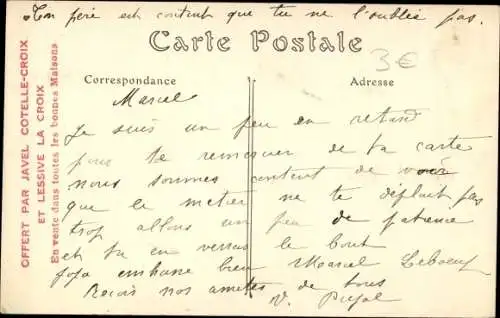 Ton père est content que tu ne l'oublie pas.
Carte Postale
3€
Correspondance
Adresse
Marcel
Je suis un peu en retard
pour te remercier de ta carte
nous sommes content de voir
que le metier ne te déplait pas
trop allons un peu de patience
et tu en verras le bout
embrasse bien Marcel Leboeuf
Recois nos amities de tous
V. Pujol
OFFERT PAR JAVEL COTELLE-CROIX
ET LESSIVE LA CROIX
En vente dans toutes les bonnes Maisons